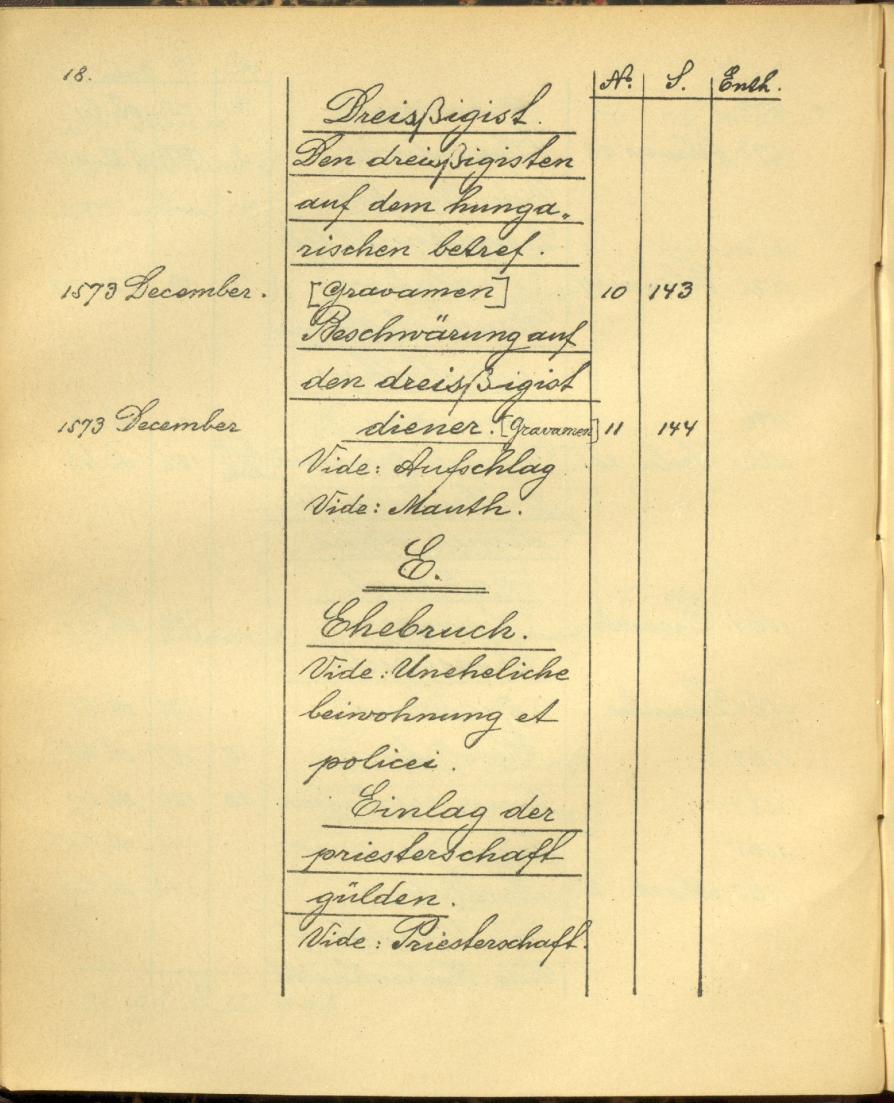 18.
No. S. Enth.
Dreisßigist.
Den dreisßigisten
auf dem hunga„
rischen betref.
1573 December. [Gravamen] 10 143
Beschwärung auf
den dreisßigist
1573 December diener. [Gravamen] 11 144
Vide: Aufschlag
Vide: Mauth.
E.
Ehebruch.
Vide: Uneheliche
beiwohnung et
policei.
Einlag der
priesterschaft
gülden.
Vide: Priesterschaft.